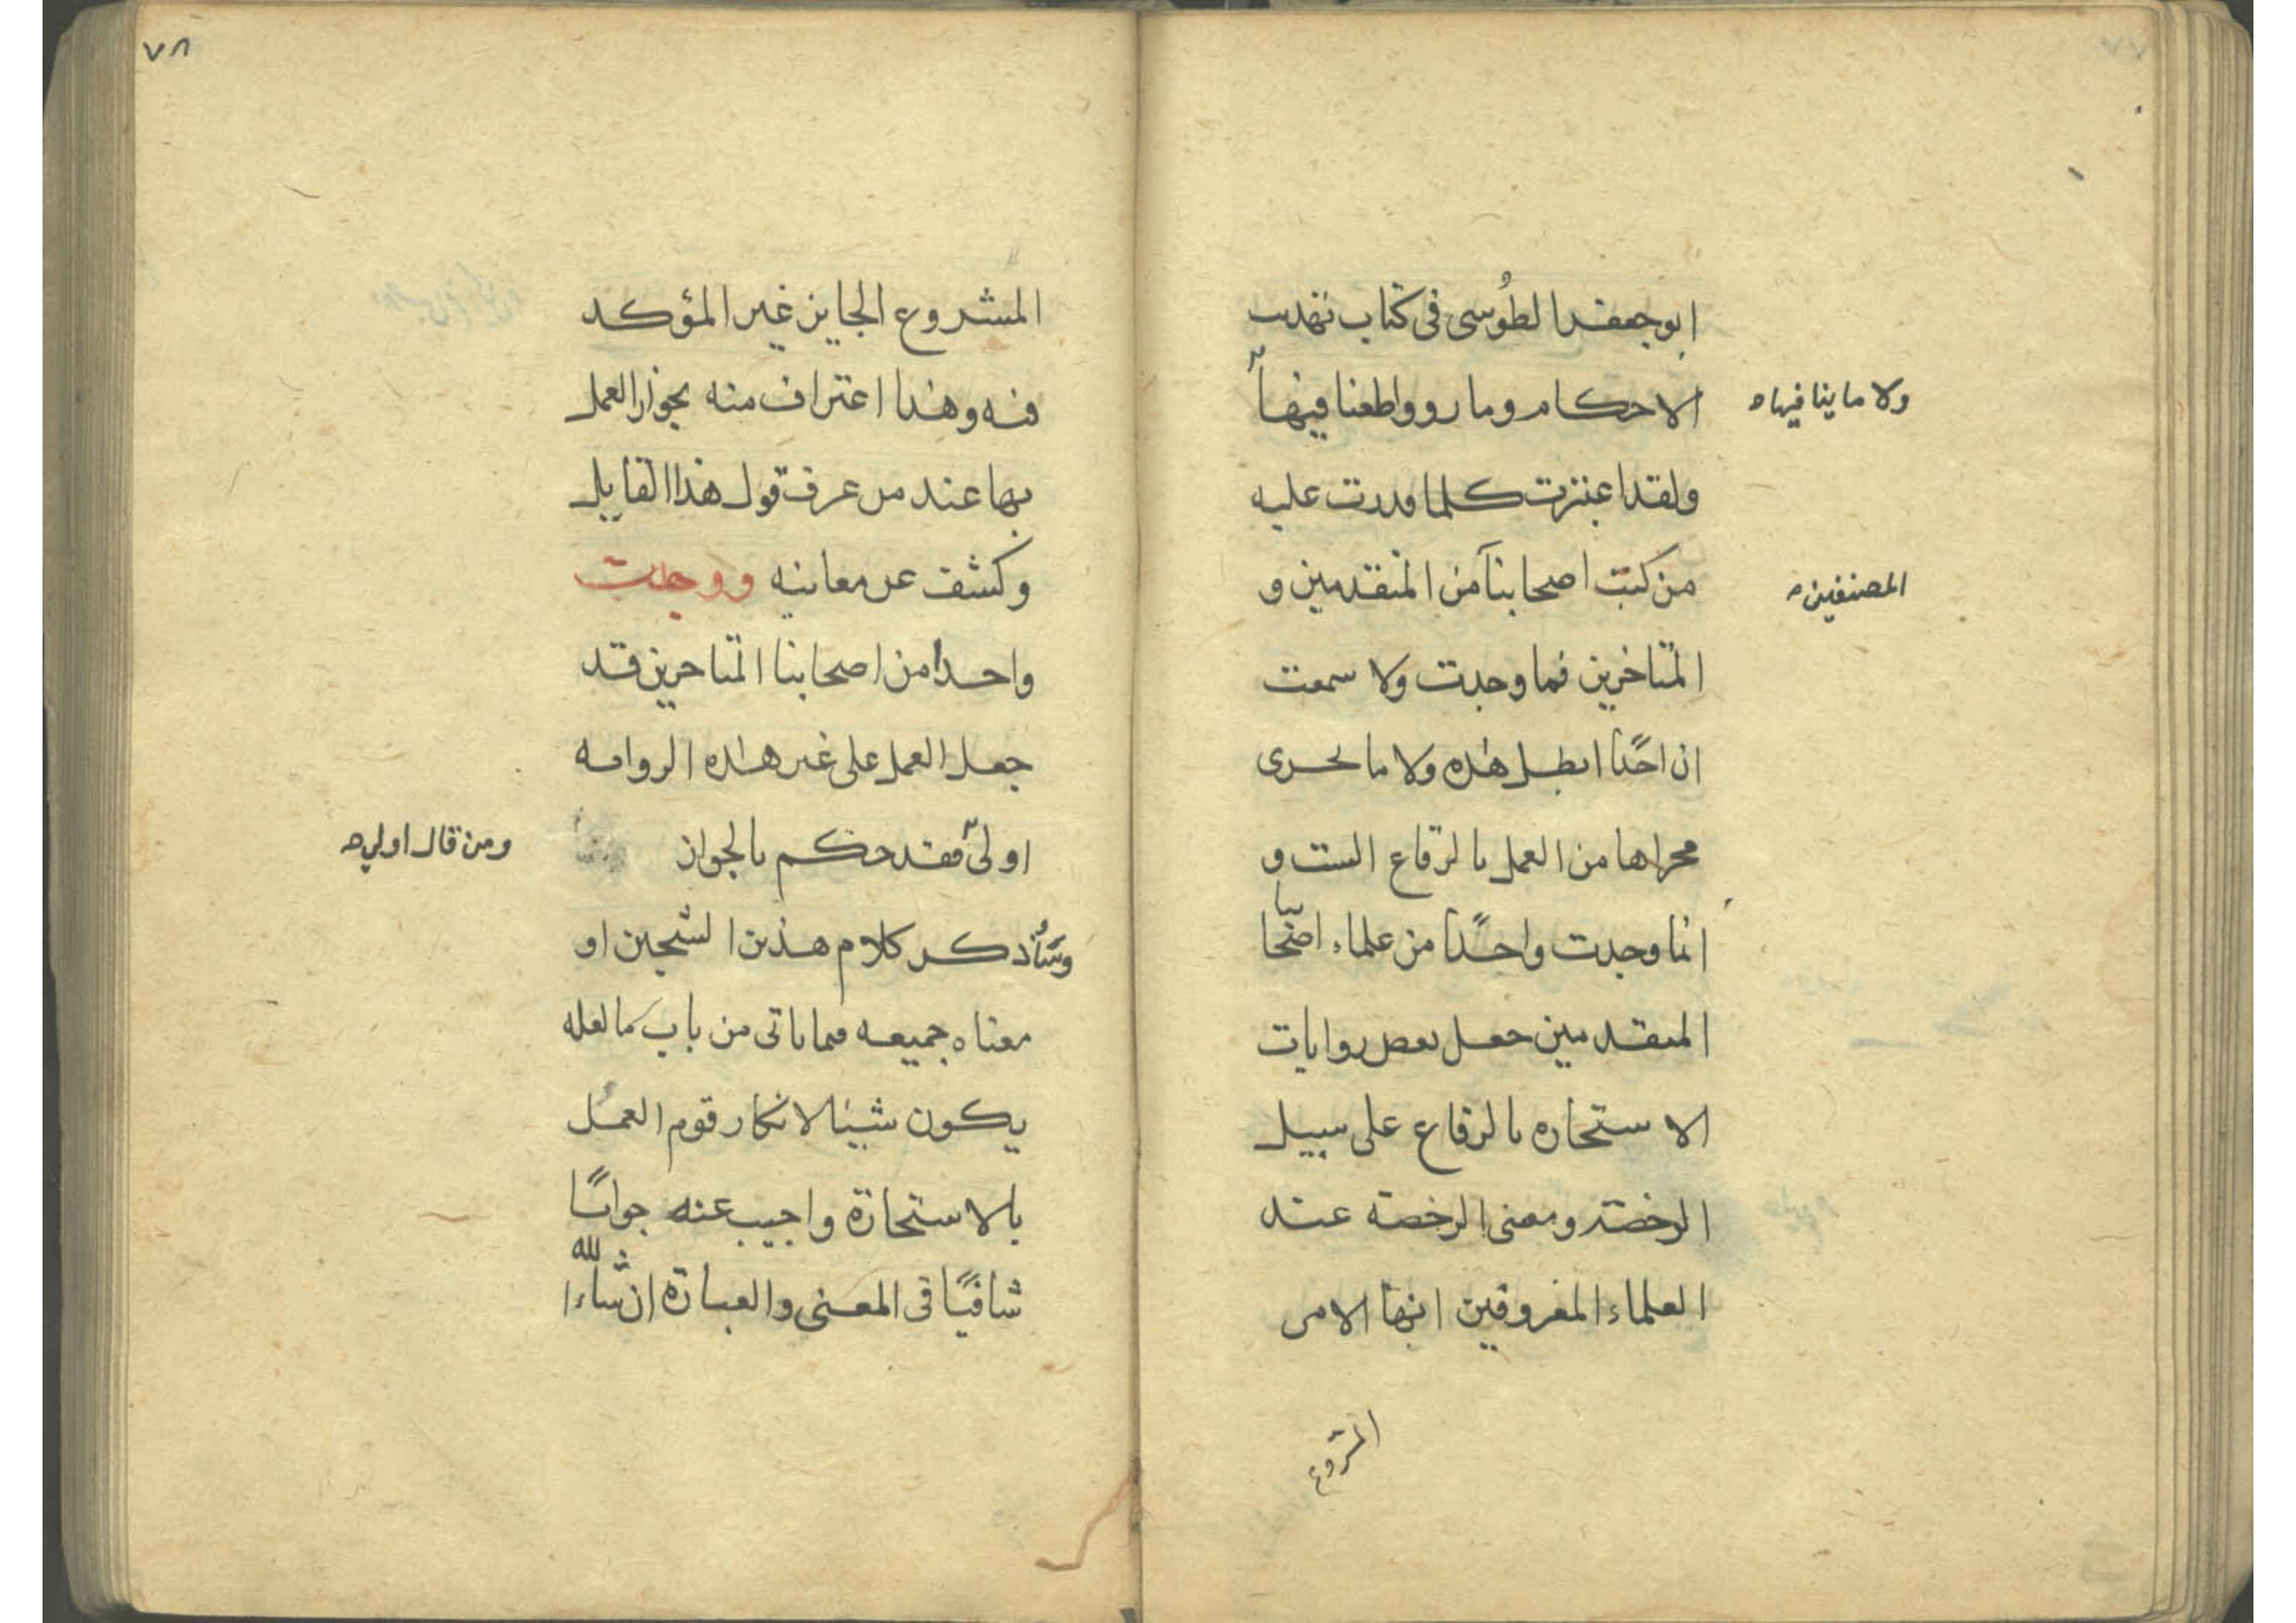 ابو جعفر الطوسى فى كتاب تهذيب
الاحكام وما روو اطعنا فيها
ولا ما ينافيها
ولقد اعتبرت كلما قدرت عليه
من كتب اصحابنا من المتقدمين و
المصنفين
المتاخرين فما وجدت ولا سمعت
ان احدًا ابطل هذه ولا ما يجرى
مجراها من العمل بالرقاع الست و
انما وجدت واحدًا من علماء اصحابنا
المتقدمين جعل بعض روايات
الاستخاره بالرقاع على سبيل
الرخصة ومعنى الرخصة عند
العلماء المعروفين انها الامر
المشروع
٧٨
المشروع الجايز غير المؤكد
فيه وهذا اعتراف منه بجواز العمل
بها عند من عرف قول هذا القايل
وكشف عن معانيه ووجدت
واحدا من اصحابنا المتاخرين قد
جعل العمل على غير هذه الروايه
اولى فقد حكم بالجواز
ومن قال اولى
وسأذكر كلام هذين الشيخين او
معناه جميعه فيما ياتى من باب ما لعله
يكون شيئا لانكار قوم العمل
بالاستخارة واجيب عنه جوابًا
شافيًا فى المعنى والعبارة ان شاء الله